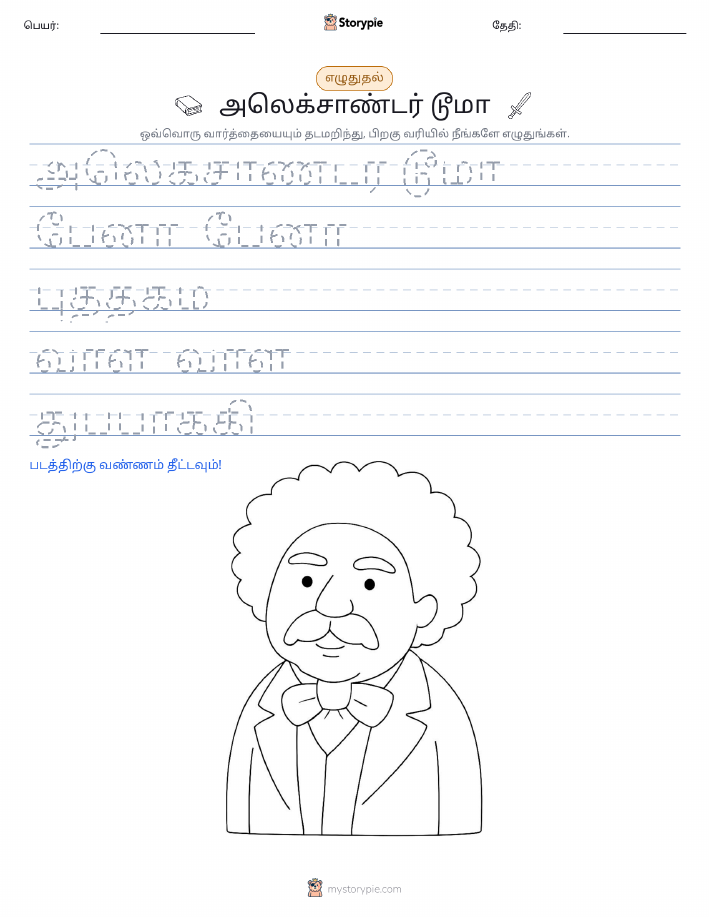 பெயர்:
Storypie
தேதி:
எழுதுதல்
அலெக்சாண்டர் டூமா
ஒவ்வொரு வார்த்தையையும் தடமறிந்து, பிறகு வரியில் நீங்களே எழுதுங்கள்.
அலெகசாணடர டூமா
பேனா பேனா
புததகம
வாள வாள
துபபாககி
படத்திற்கு வண்ணம் தீட்டவும்!
mystorypie.com